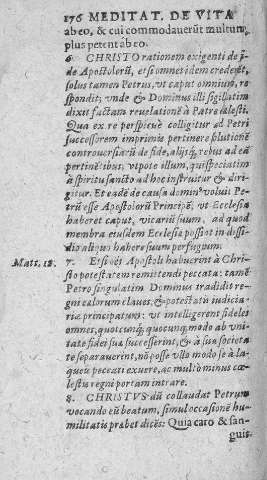 176 MEDITAT. DE VITA
ab eo, & cui commodauerūt multum,
plus petent ab eo.
6. CHRISTO rationem exigenti de fi-
de Apostolorū, etsi omnes idem crederēt,
solus tamen Petrus, vt caput omnium, re-
spondit; vnde & Dominus illi sigillatim
dixit factam reuelationē à Patre cælesti.
Qua ex re perspicuè colligitur ad Petri
successorem imprimis pertinere solutionē
controuersiarū de fide, alijsq; rebus ad eā
pertinētibus, vtpote illum, qui speciatim
à spiritu sancto ad hoc instruitur & diri-
gitur. Et eadē de causa dominꝰ voluit Pe-
trū esse Apostolorū Principē, vt Ecclesia
haberet caput, vicariū suum, ad quod
membra eiusdem Ecclesiæ possint in dissi-
dio aliquo habere suum perfugium.
Matt. 18. 7. Etsi oēs Apostoli habuerint à Chri-
sto potestatem remittendi peccata: tamē
Petro singulatim Dominus tradidit re-
gni cælorum claues, & potestatis iudicia-
riæ principatum: vt intelligerent fideles
omnes, quotcunq; quocunq; modo ab vni-
tate fidei suæ successerint, & à sua societa
te separauerint, nō posse vllo modo se à la-
queis peccati exuere, ac multo minus cæ-
lestis regni portam intrare.
8. CHRISTVS dū collaudat Petrum
vocando eū beatum, simul occasionē hu-
militatis præbet dicēs: Quia caro & san-
guis